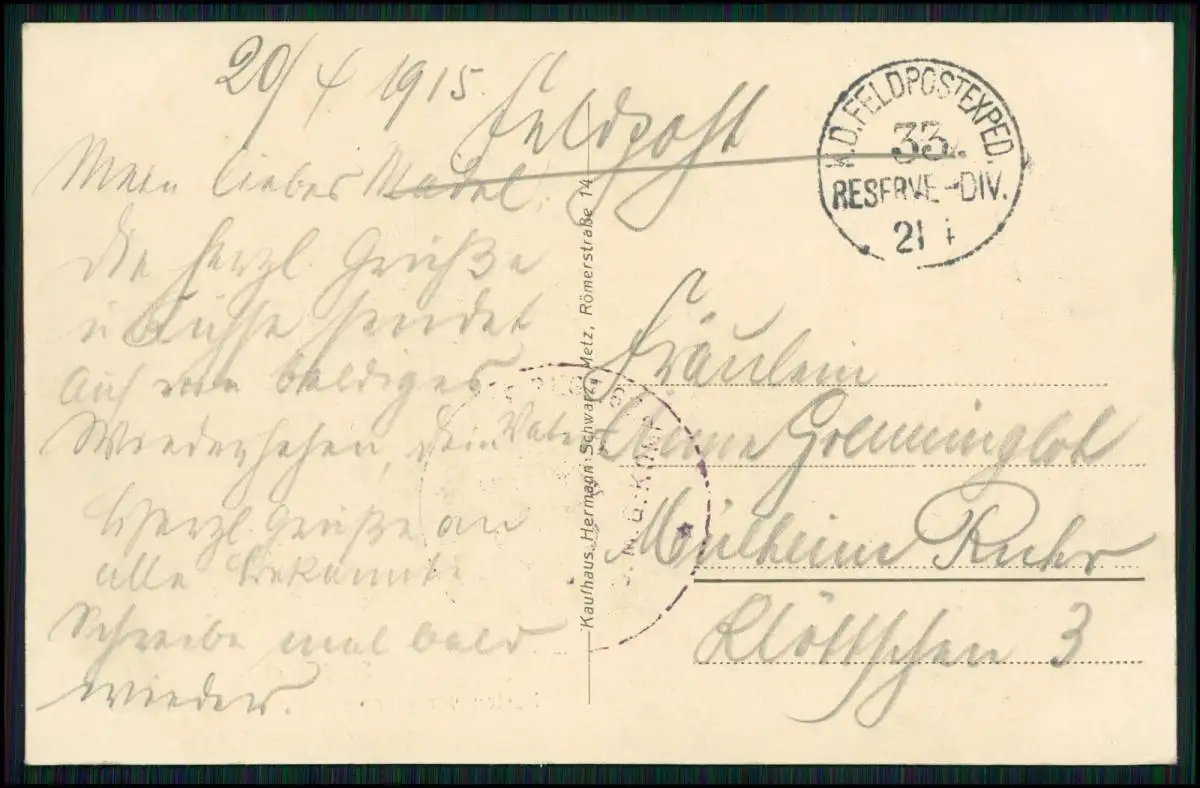 20/4 1915.
Feldpost
Mein liebes Mädel.
die herzl. Grüße
u Küsse sendet
Auf ein baldiges
Wiedersehen, dein Vater
Herzl. Grüße an
alle Bekannte
Schreibe mal bald
wieder.
K.D. FELDPOSTEXPED.
33.
RESERVE-DIV.
21 4
Kaufhaus Hermann Schwarz, Metz, Römerstraße 14
M.G. KOMP
Fräulein
Anne
Mülheim Ruhr
Klöttschen 3